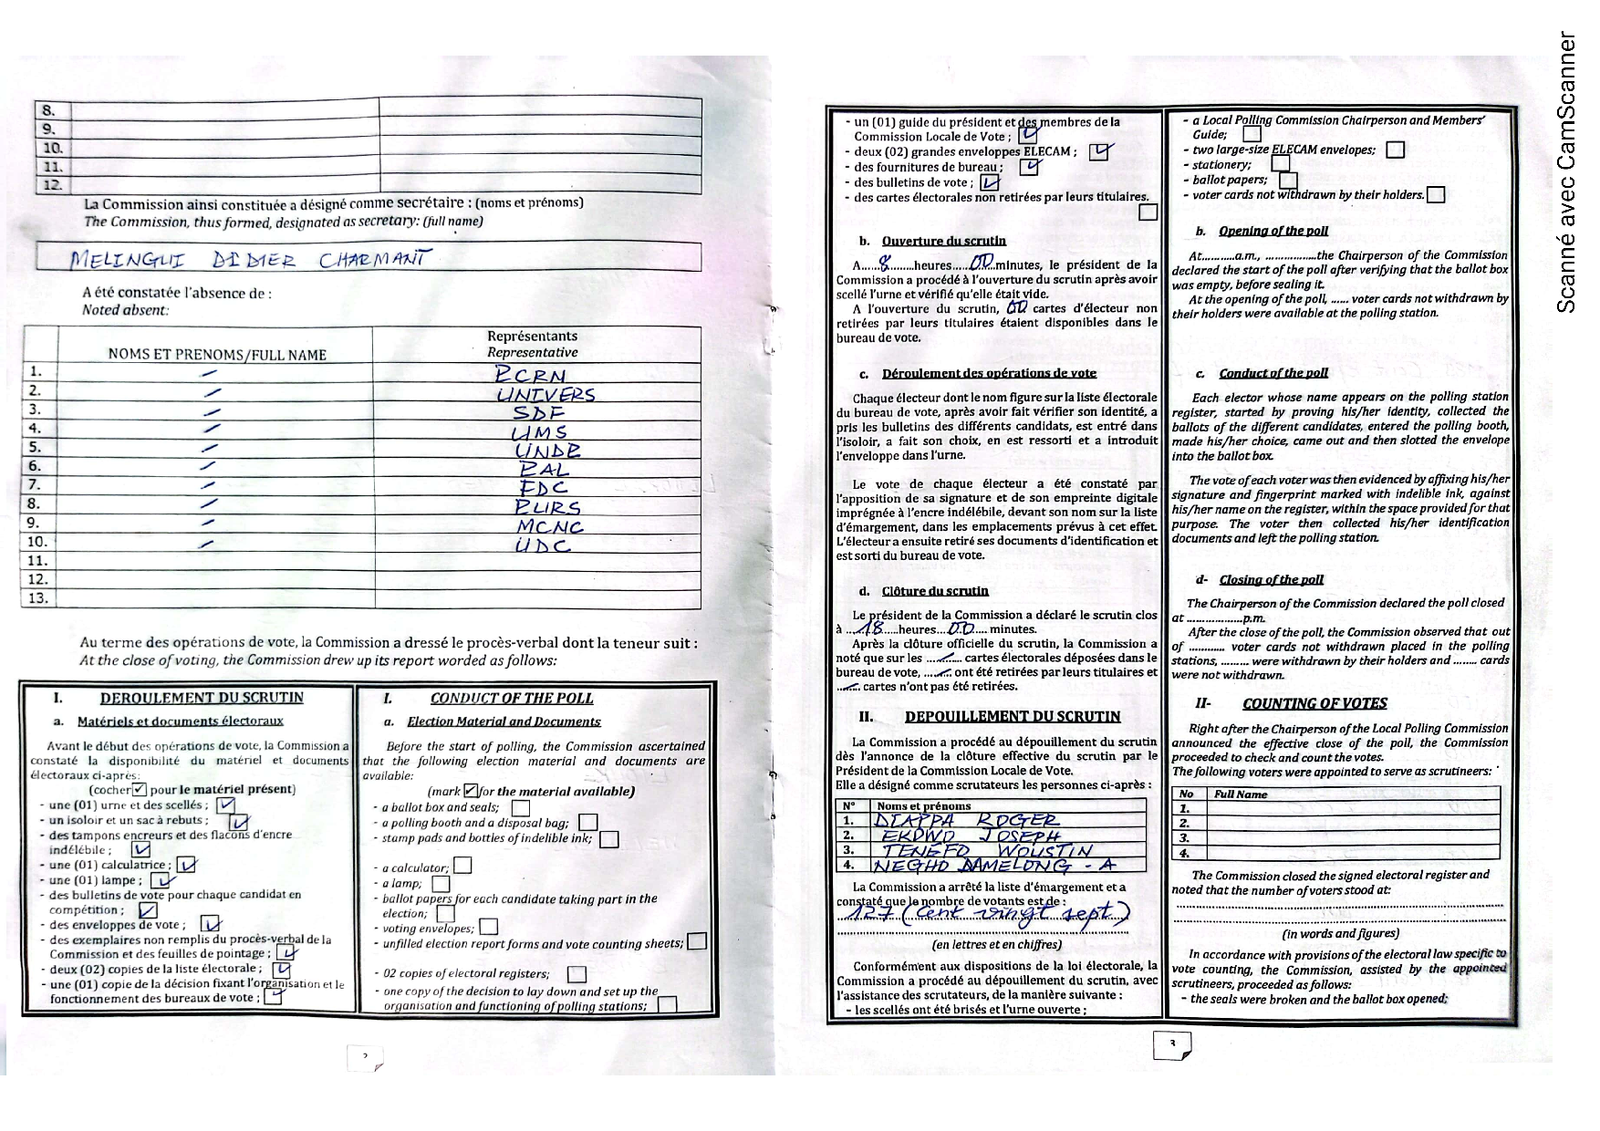 8.
9.
10.
11.
12.
La Commission ainsi constituée a désigné comme secrétaire : (noms et prénoms)
The Commission, thus formed, designated as secretary: (full name)
MELINGUI DIDIER CHARMANT
A été constatée l'absence de :
Noted absent:
NOMS ET PRENOMS/FULL NAME
Représentants
Representative
1. PCRN
2. UNIVERS
3. SDF
4. UMS
5. UNDP
6. PAL
7. FDC
8. PURS
9. MCNC
10. UDC
11.
12.
13.
Au terme des opérations de vote, la Commission a dressé le procès-verbal dont la teneur suit :
At the close of voting, the Commission drew up its report worded as follows:
I. DEROULEMENT DU SCRUTIN
a. Matériels et documents électoraux
Avant le début des opérations de vote, la Commission a
constaté la disponibilité du matériel et documents
électoraux ci-après:
(cocher ☑ pour le matériel présent)
- une (01) urne et des scellés ; ☑
- un isoloir et un sac à rebuts ; ☑
- des tampons encreurs et des flacons d'encre
indélébile ; ☑
- une (01) calculatrice ; ☑
- une (01) lampe ; ☑
- des bulletins de vote pour chaque candidat en
compétition ; ☑
- des enveloppes de vote ; ☑
- des exemplaires non remplis du procès-verbal de la
Commission et des feuilles de pointage ; ☑
- deux (02) copies de la liste électorale ; ☑
- une (01) copie de la décision fixant l'organisation et le
fonctionnement des bureaux de vote ; ☑
I. CONDUCT OF THE POLL
a. Election Material and Documents
Before the start of polling, the Commission ascertained
that the following election material and documents are
available:
(mark ☑ for the material available)
- a ballot box and seals; ☐
- a polling booth and a disposal bag; ☐
- stamp pads and bottles of indelible ink; ☐
- a calculator; ☐
- a lamp; ☐
- ballot papers for each candidate taking part in the
election; ☐
- voting envelopes; ☐
- unfilled election report forms and vote counting sheets; ☐
- 02 copies of electoral registers; ☐
- one copy of the decision to lay down and set up the
organisation and functioning of polling stations; ☐
2
- un (01) guide du président et des membres de la
Commission Locale de Vote ; ☑
- deux (02) grandes enveloppes ELECAM ; ☑
- des fournitures de bureau ; ☑
- des bulletins de vote ; ☑
- des cartes électorales non retirées par leurs titulaires.
☐
b. Ouverture du scrutin
A.....8.......heures.....00..minutes, le président de la
Commission a procédé à l'ouverture du scrutin après avoir
scellé l'urne et vérifié qu'elle était vide.
A l'ouverture du scrutin, 00 cartes d'électeur non
retirées par leurs titulaires étaient disponibles dans le
bureau de vote.
c. Déroulement des opérations de vote
Chaque électeur dont le nom figure sur la liste électorale
du bureau de vote, après avoir fait vérifier son identité, a
pris les bulletins des différents candidats, est entré dans
l'isoloir, a fait son choix, en est ressorti et a introduit
l'enveloppe dans l'urne.
Le vote de chaque électeur a été constaté par
l'apposition de sa signature et de son empreinte digitale
imprégnée à l'encre indélébile, devant son nom sur la liste
d'émargement, dans les emplacements prévus à cet effet.
L'électeur a ensuite retiré ses documents d'identification et
est sorti du bureau de vote.
d. Clôture du scrutin
Le président de la Commission a déclaré le scrutin clos
à ....18.....heures....00.... minutes.
Après la clôture officielle du scrutin, la Commission a
noté que sur les ........ cartes électorales déposées dans le
bureau de vote, ...... ont été retirées par leurs titulaires et
...... cartes n'ont pas été retirées.
II. DEPOUILLEMENT DU SCRUTIN
La Commission a procédé au dépouillement du scrutin
dès l'annonce de la clôture effective du scrutin par le
Président de la Commission Locale de Vote.
Elle a désigné comme scrutateurs les personnes ci-après :
N° Noms et prénoms
1. DIAPPA ROGER
2. EKOWO JOSEPH
3. TENEFO WOUSTIN
4. NEGHO DAMELONG - A
La Commission a arrêté la liste d'émargement et a
constaté que le nombre de votants est de :
127 (cent vingt sept)
(en lettres et en chiffres)
Conformément aux dispositions de la loi électorale, la
Commission a procédé au dépouillement du scrutin, avec
l'assistance des scrutateurs, de la manière suivante :
- les scellés ont été brisés et l'urne ouverte ;
- a Local Polling Commission Chairperson and Members'
Guide; ☐
- two large-size ELECAM envelopes; ☐
- stationery; ☐
- ballot papers; ☐
- voter cards not withdrawn by their holders. ☐
b. Opening of the poll
At..........a.m., ..............the Chairperson of the Commission
declared the start of the poll after verifying that the ballot box
was empty, before sealing it.
At the opening of the poll, ...... voter cards not withdrawn by
their holders were available at the polling station.
c. Conduct of the poll
Each elector whose name appears on the polling station
register, started by proving his/her identity, collected the
ballots of the different candidates, entered the polling booth,
made his/her choice, came out and then slotted the envelope
into the ballot box.
The vote of each voter was then evidenced by affixing his/her
signature and fingerprint marked with indelible ink, against
his/her name on the register, within the space provided for that
purpose. The voter then collected his/her identification
documents and left the polling station.
d- Closing of the poll
The Chairperson of the Commission declared the poll closed
at ..................p.m.
After the close of the poll, the Commission observed that out
of ........... voter cards not withdrawn placed in the polling
stations, ......... were withdrawn by their holders and ........ cards
were not withdrawn.
II- COUNTING OF VOTES
Right after the Chairperson of the Local Polling Commission
announced the effective close of the poll, the Commission
proceeded to check and count the votes.
The following voters were appointed to serve as scrutineers:
No Full Name
1.
2.
3.
4.
The Commission closed the signed electoral register and
noted that the number of voters stood at:
(in words and figures)
In accordance with provisions of the electoral law specific to
vote counting, the Commission, assisted by the appointed
scrutineers, proceeded as follows:
- the seals were broken and the ballot box opened;
3
Scanné avec CamScanner